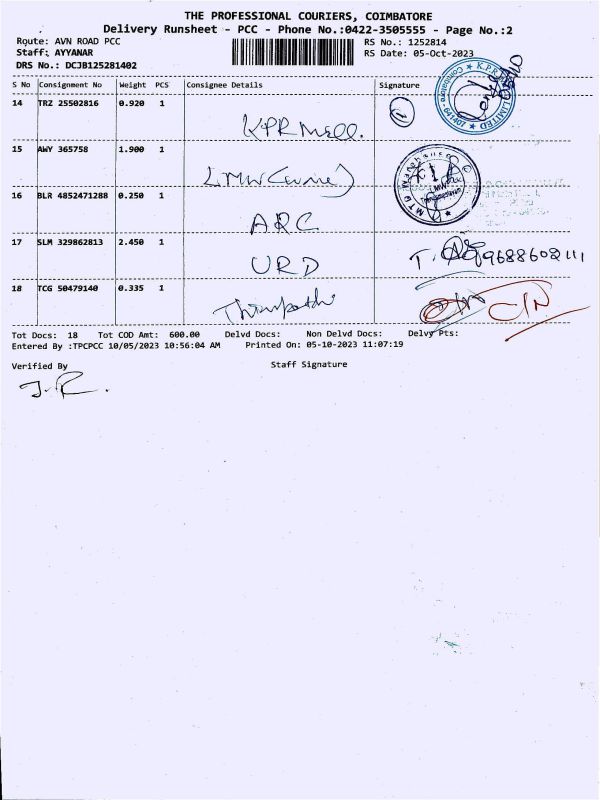 THE PROFESSIONAL COURIERS, COIMBATORE
Delivery Runsheet - PCC - Phone No.:0422-3505555 - Page No.:2
Route: AVN ROAD PCC RS No.: 1252814
Staff: AYYANAR RS Date: 05-Oct-2023
DRS No.: DCJB125281402
S No Consignment No Weight PCS Consignee Details Signature
14 TRZ 25502816 0.920 1 KPR Mell. 1
15 AWY 365758 1.900 1 LMW
16 BLR 4852471288 0.250 1 ARC
17 SLM 329862813 2.450 1 URD T. 9688608111
18 TCG 50479140 0.335 1
Tot Docs: 18 Tot COD Amt: 600.00 Delvd Docs: Non Delvd Docs: Delvy Pts:
Entered By :TPCPCC 10/05/2023 10:56:04 AM Printed On: 05-10-2023 11:07:19
Verified By Staff Signature
J.R.